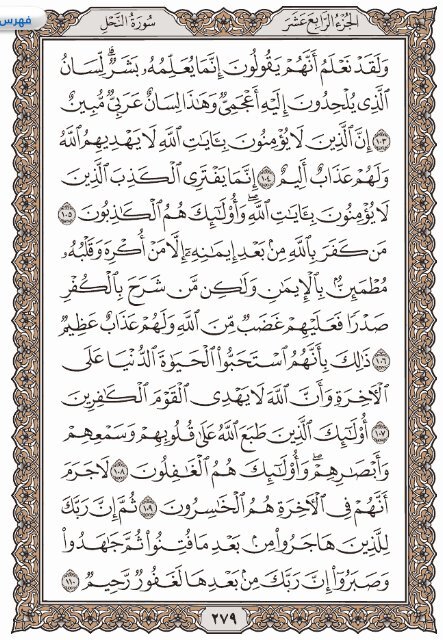 فهرس
سُورَةُ النَّحْلِ
الجُزْءُ الرَّابِعَ عَشَرَ
وَلَقَدْ نَعْلَمُ أَنَّهُمْ يَقُولُونَ إِنَّمَا يُعَلِّمُهُۥ بَشَرٌ ۗ لِّسَانُ
ٱلَّذِى يُلْحِدُونَ إِلَيْهِ أَعْجَمِىٌّ وَهَـٰذَا لِسَانٌ عَرَبِىٌّ مُّبِينٌ
١٠٣ إِنَّ ٱلَّذِينَ لَا يُؤْمِنُونَ بِـَٔايَـٰتِ ٱللَّهِ لَا يَهْدِيهِمُ ٱللَّهُ
وَلَهُمْ عَذَابٌ أَلِيمٌ ١٠٤ إِنَّمَا يَفْتَرِى ٱلْكَذِبَ ٱلَّذِينَ
لَا يُؤْمِنُونَ بِـَٔايَـٰتِ ٱللَّهِ ۖ وَأُو۟لَـٰٓئِكَ هُمُ ٱلْكَـٰذِبُونَ ١٠٥
مَن كَفَرَ بِٱللَّهِ مِنۢ بَعْدِ إِيمَـٰنِهِۦٓ إِلَّا مَنْ أُكْرِهَ وَقَلْبُهُۥ
مُطْمَئِنٌّۢ بِٱلْإِيمَـٰنِ وَلَـٰكِن مَّن شَرَحَ بِٱلْكُفْرِ
صَدْرًا فَعَلَيْهِمْ غَضَبٌ مِّنَ ٱللَّهِ وَلَهُمْ عَذَابٌ عَظِيمٌ
١٠٦ ذَٰلِكَ بِأَنَّهُمُ ٱسْتَحَبُّوا۟ ٱلْحَيَوٰةَ ٱلدُّنْيَا عَلَى
ٱلْـَٔاخِرَةِ وَأَنَّ ٱللَّهَ لَا يَهْدِى ٱلْقَوْمَ ٱلْكَـٰفِرِينَ
١٠٧ أُو۟لَـٰٓئِكَ ٱلَّذِينَ طَبَعَ ٱللَّهُ عَلَىٰ قُلُوبِهِمْ وَسَمْعِهِمْ
وَأَبْصَـٰرِهِمْ ۖ وَأُو۟لَـٰٓئِكَ هُمُ ٱلْغَـٰفِلُونَ ١٠٨ لَا جَرَمَ
أَنَّهُمْ فِى ٱلْـَٔاخِرَةِ هُمُ ٱلْخَـٰسِرُونَ ١٠٩ ثُمَّ إِنَّ رَبَّكَ
لِلَّذِينَ هَاجَرُوا۟ مِنۢ بَعْدِ مَا فُتِنُوا۟ ثُمَّ جَـٰهَدُوا۟
وَصَبَرُوٓا۟ إِنَّ رَبَّكَ مِنۢ بَعْدِهَا لَغَفُورٌ رَّحِيمٌ ١١٠
٢٧٩